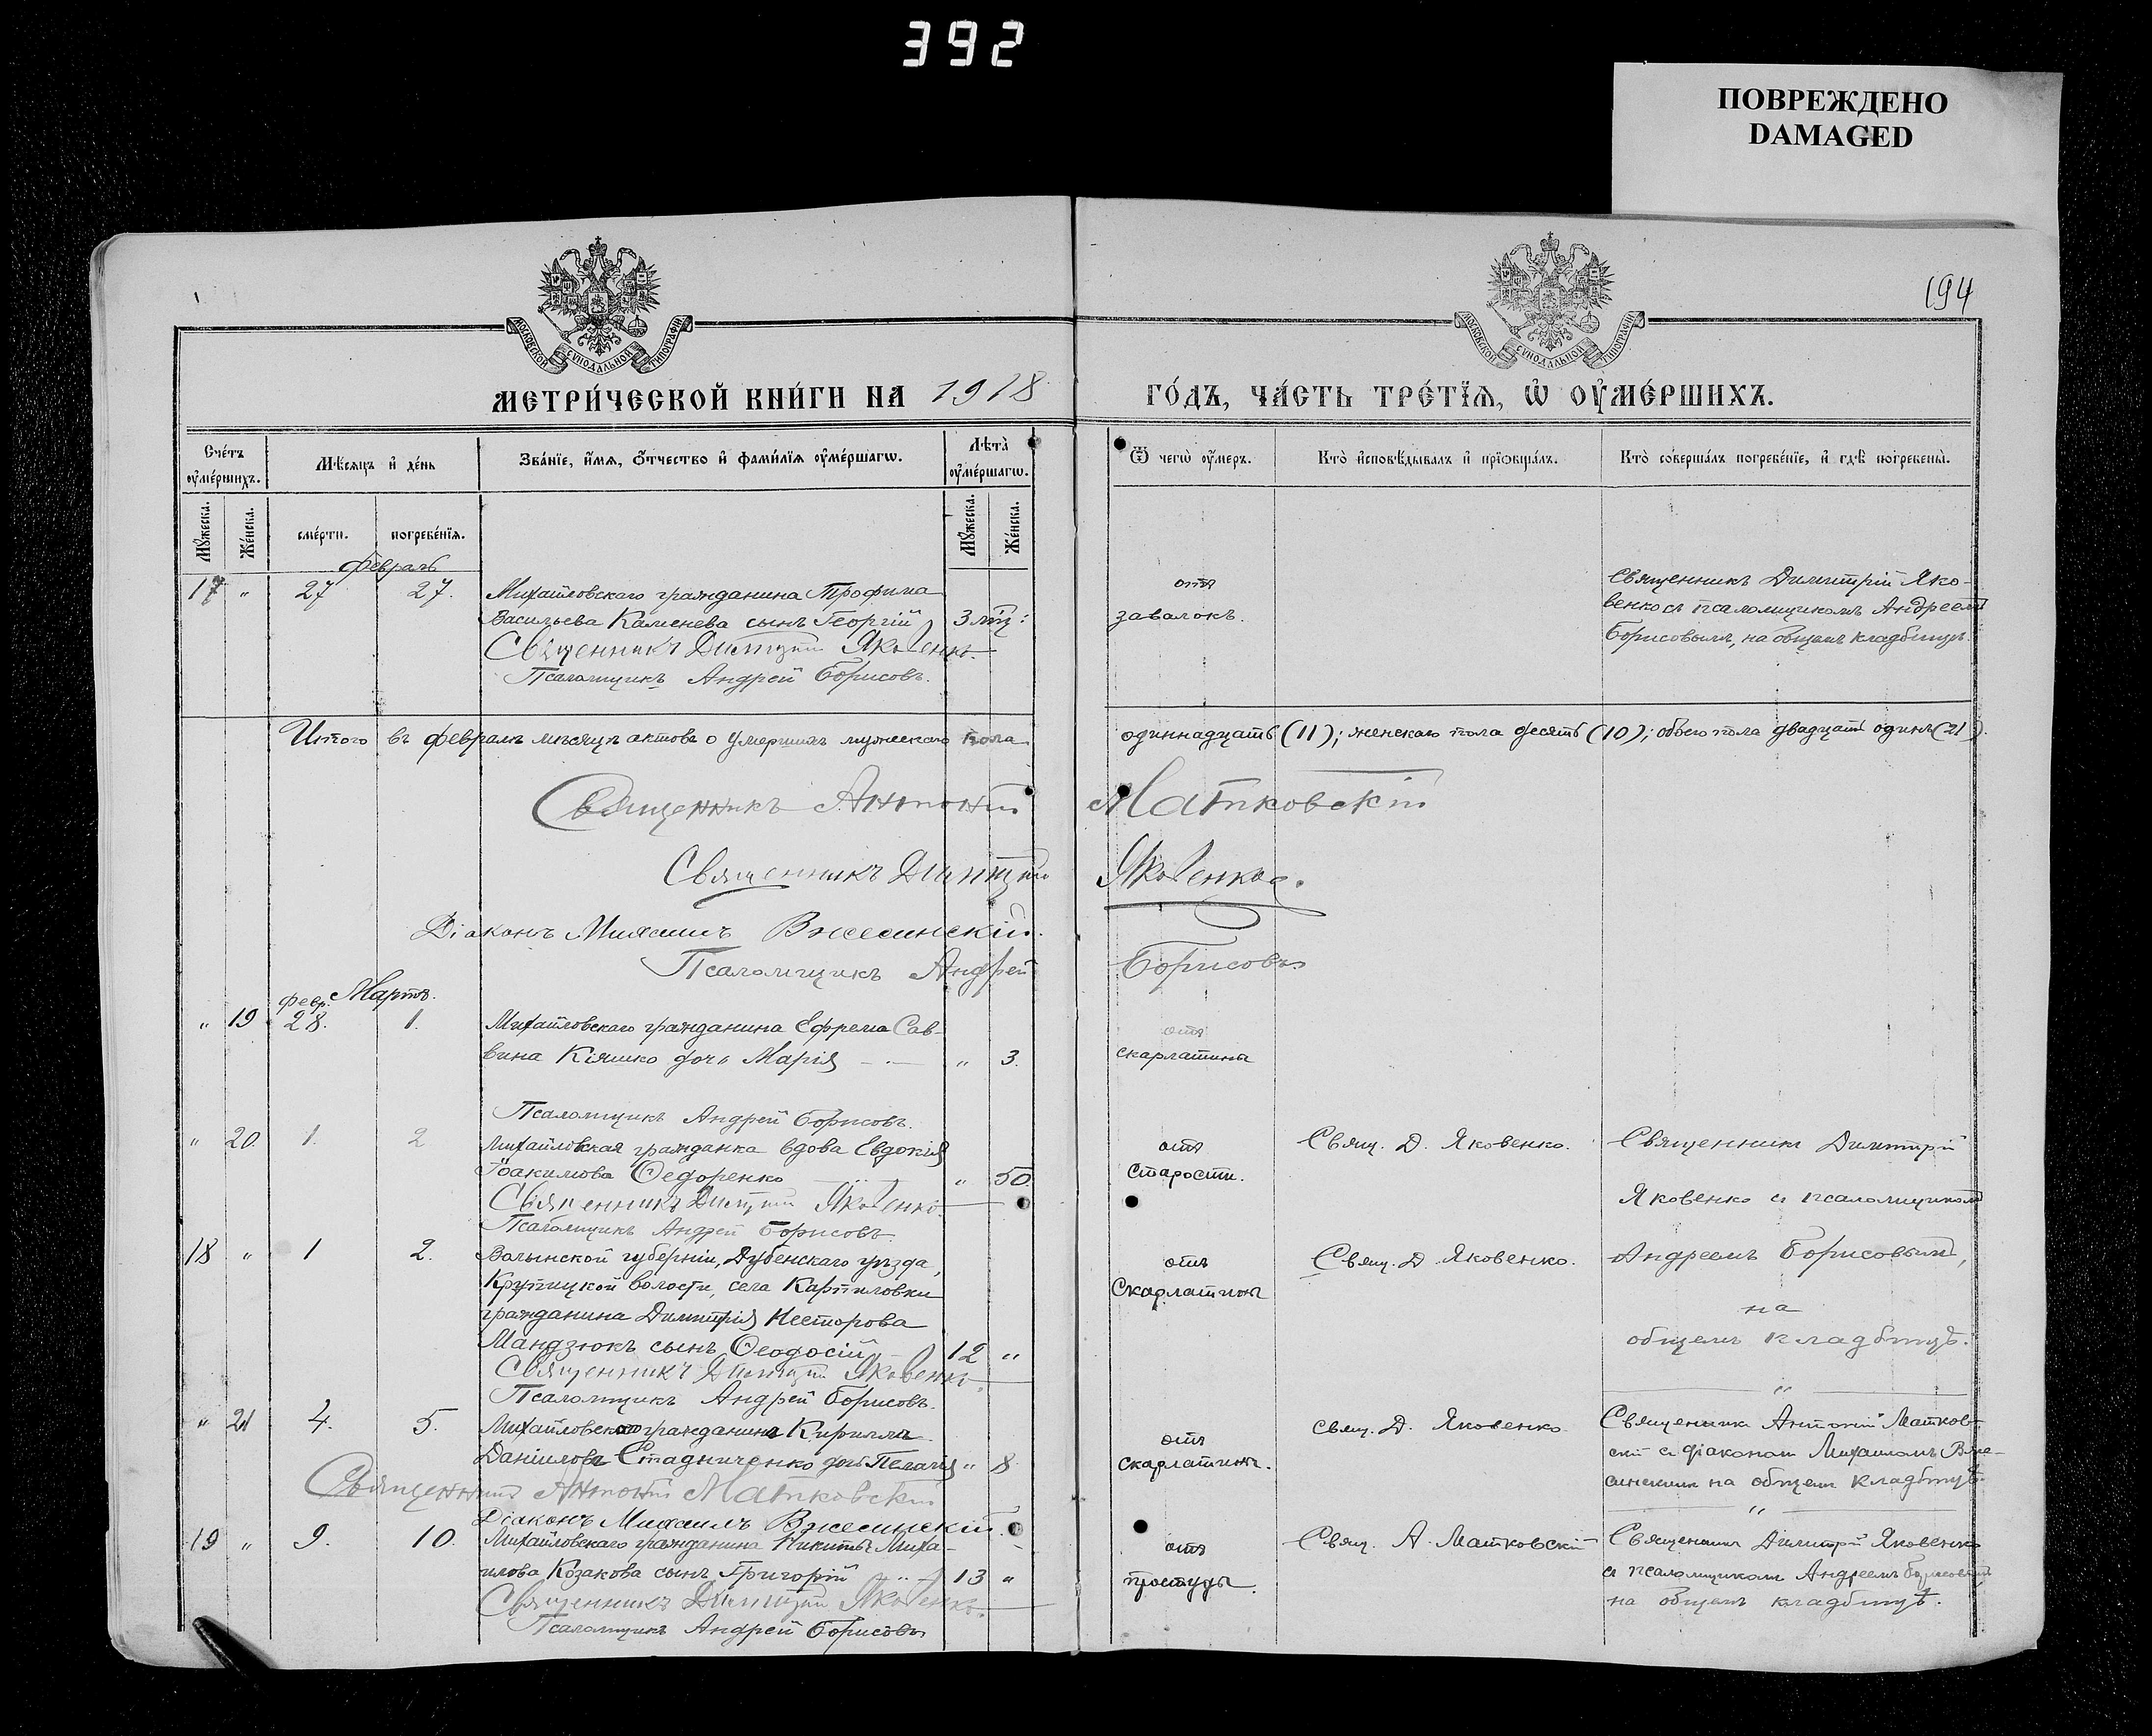 392
ПОВРЕЖДЕНО
DAMAGED
194
МОСКОВСКОЙ СѴНОДАЛЬНОЙ ТИПОГРАФІИ
МОСКОВСКОЙ СѴНОДАЛЬНОЙ ТИПОГРАФІИ
МЕТРИ́ЧЕСКОЙ КНИ́ГИ НА 1918
ГО́ДЪ, ЧА́СТЬ ТРЕ́ТЇѦ, Ѡ҆ ОУ҆МЕ́РШИХЪ.
Сче́тъ оу҆ме́ршихъ.
Мѣ́сяцъ и҆ де́нь
Зва́нїе, и҆́мѧ, ѻ҆́тчество и҆ фами́лїѧ оу҆ме́ршагѡ.
Лѣ́та̀ оу҆ме́ршагѡ.
Ѿ чегѡ̀ оу҆́меръ.
Кто̀ и҆сповѣ́дывалъ и҆ прїѡбща́лъ.
Кто̀ соверша́лъ погребе́нїе, и҆ гдѣ̀ погребены̀.
Мꙋ́жеска.
Же́нска.
сме́рти.
погребе́нїѧ.
Мꙋ́жеска.
Же́нска.
Февраль
17 " 27 27. Михайловскаго гражданина Трофима
Васильева Каменева сынъ Георгій 3 мц:
Священникъ Димитрій Яковенко.
Псаломщикъ Андрей Борисовъ.
отъ
завалокъ.
Священникъ Димитрій Яко-
венко съ псаломщикомъ Андреемъ
Борисовымъ, на общемъ кладбищѣ
Итого въ февралѣ мѣсяцѣ актовъ о умершихъ мужескаго пола
одиннадцать (11); женскаго пола десять (10); обоего пола двадцать одинъ (21).
Священникъ Антоній Матковскій
Священникъ Димитрій Яковенко.
Діаконъ Михаилъ Вжесинскій.
Псаломщикъ Андрей Борисовъ
февр. Мартъ.
" 19 28. 1. Михайловскаго гражданина Ефрема Сав-
вина Кіяшко дочь Марія " 3.
отъ
скарлатины
Псаломщикъ Андрей Борисовъ.
" 20. 1. 2 Михайловская гражданка вдова Евдокія
Іоакимова Ѳедоренко " 50.
Священникъ Димитрій Яковенко.
Псаломщикъ Андрей Борисовъ.
отъ
старости.
Свящ. Д. Яковенко.
Священникъ Димитрій
Яковенко съ псаломщикомъ
18 " 1 2. Волынской губерніи, Дубенскаго уѣзда,
Крупицкой волости, села Карпиловки
гражданина Димитрія Несторова
Мандзюкъ сынъ Ѳеодосій 12 "
Священникъ Димитрій Яковенко.
Псаломщикъ Андрей Борисовъ.
отъ
Скарлатины
Свящ. Д. Яковенко.
Андреемъ Борисовымъ,
на
общемъ кладбищѣ.
"
" 21 4. 5. Михайловскаго гражданина Кирилла
Даніилова Стадниченко дочь Пелагія " 8
Священникъ Антоній Матковскій
Діаконъ Михаилъ Вжесинскій.
отъ
скарлатины.
свящ. Д. Яковенко
Священникъ Антоній Матков-
скій съ діакономъ Михаиломъ Вже-
синскимъ на общемъ кладбищѣ.
"
19 " 9. 10. Михайловскаго гражданина Никиты Миха-
илова Козакова сынъ Григорій 13 "
Священникъ Димитрій Яковенко.
Псаломщикъ Андрей Борисовъ
отъ
простуды.
Свящ. А. Матковскій
Священникъ Димитрій Яковенко
съ псаломщикомъ Андреемъ Борисовымъ
на общемъ кладбищѣ.